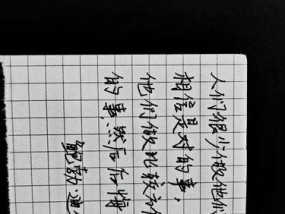 人们很少做他们
相信是对的事。
他们做比较方
的事,然后后悔